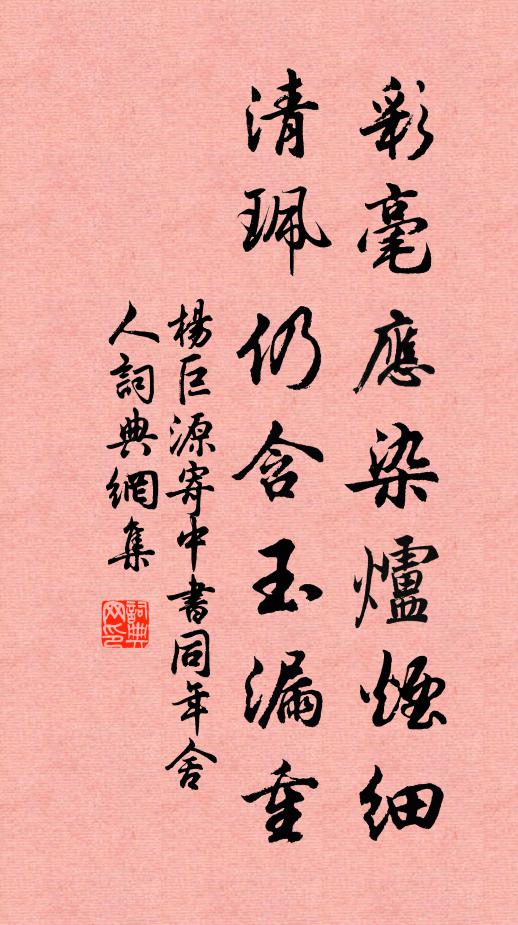 彩毫應染爐煙細
清珮仍含玉漏重
楊巨源寄中書同年舍
人詞典網集
詞典
网印